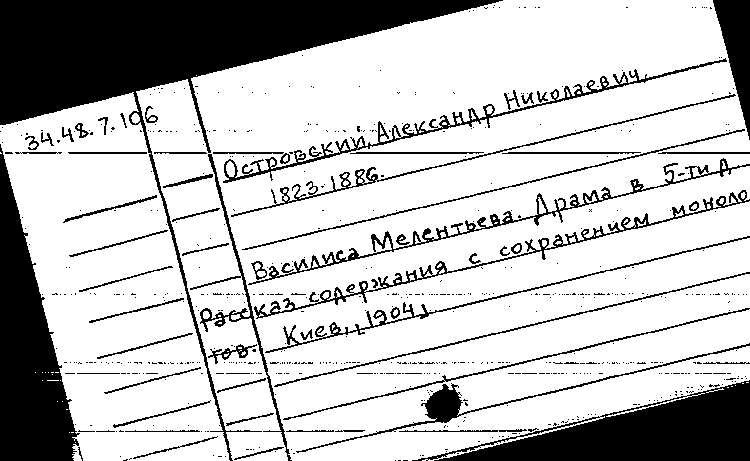 34.48.7.106
Островский, Александр Николаевич,
1823-1886.
Василиса Мелентьева. Драма в 5-ти д
Рассказ содержания с сохранением моноло
гов. Киев, [1904]